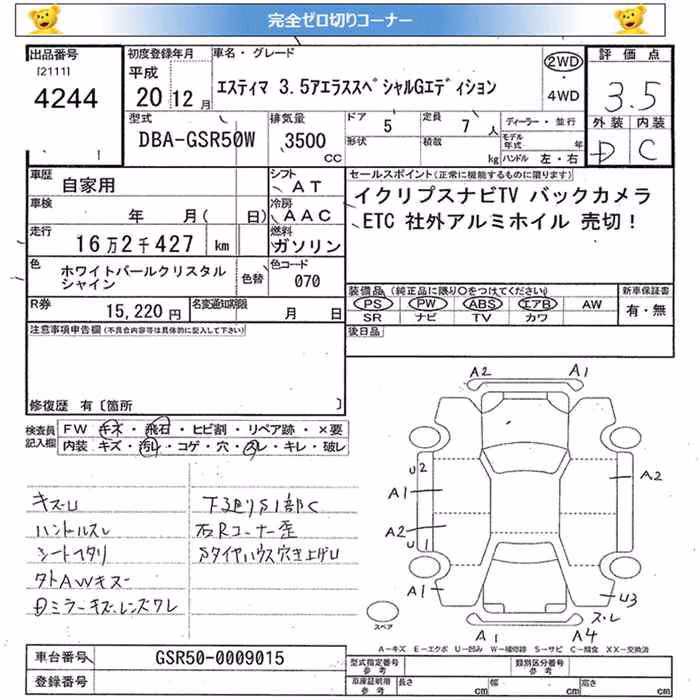 完全ゼロ切りコーナー
出品番号 初度登録年月 車名・グレード 評価点
[2111] 平成 2WD
4244 20 12月 エスティマ 3.5アエラススペシャルGエディション ・ 3.5
4WD
型式 排気量 ドア 5 定員 7人 ディーラー・並行 外装 内装
DBA-GSR50W 3500 cc 形状 積載 kg モデル年式 年 D C
ハンドル 左・右
車歴 自家用 シフト AT セールスポイント(正常に機能するものに限ります)
車検 年 月( 日) 冷房 AAC イクリプスナビTV バックカメラ
走行 16万2千427 km 燃料 ガソリン ETC 社外アルミホイル 売切!
色 ホワイトパールクリスタル 色替 色コード
シャイン 070
装備品(純正品に限り○をつけてください) 新車保証書
R券 15,220円 名変通知期限 月 日 PS PW ABS エアB AW 有・無
SR ナビ TV カワ
注意事項申告欄(不具合内容等は具体的に記入して下さい) 後日品
修復歴 有〔箇所 〕
検査員 FW キズ・飛石・ヒビ割・リペア跡・×要
記入欄 内装 キズ・汚レ・コゲ・穴・スレ・キレ・破レ
A2 A1
U2
A1 A2
A2
U1
A1 U3
スレ
A1 A4
キズU 下廻りS1部C
ハンドルスレ 右Rコーナー歪
シートヘタリ Sタイヤハウス穴き上げU
タトAWキズ
Dミラーキズ レンズワレ
スペア
A-キズ E-エクボ U-凹み W-補修跡 S-サビ C-腐食 XX-交換済
車台番号 GSR50-0009015 型式指定番号 参考 類別区分番号 参考
登録番号 車庫証明用 参考 長さ cm 幅 cm 高さ cm